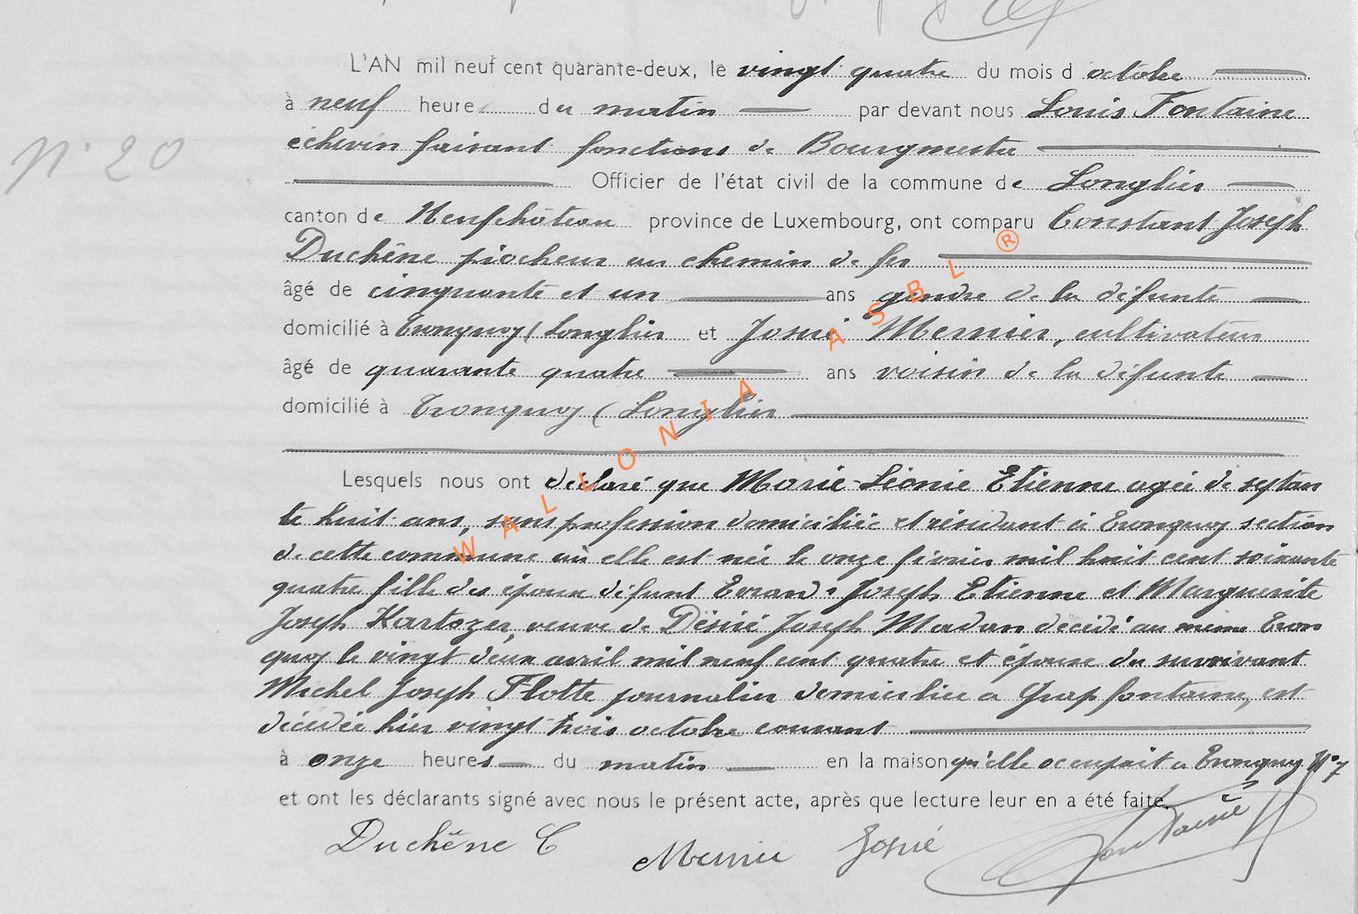 L'AN mil neuf cent quarante-deux, le vingt quatre du mois d'octobre
à neuf heures du matin par devant nous Louis Fontaine
N° 20
échevin faisant fonctions de Bourgmestre
Officier de l'état civil de la commune de Longlier
canton de Neufchâteau province de Luxembourg, ont comparu Constant Joseph
Duchêne piocheur au chemin de fer
âgé de cinquante et un ans gendre de la défunte
domicilié à Tronquoy (Longlier et Josué Mernier, cultivateur
âgé de quarante quatre ans voisin de la défunte
domicilié à Tronquoy (Longlier
Lesquels nous ont déclaré que Marie-Léonie Etienne agée de septan
te huit ans, sans profession domiciliée et résidant à Tronquoy section
de cette commune où elle est née le onze février mil huit cent soixante
quatre fille des époux défunt Joseph Etienne et Marguerite
Joseph veuve de Désiré Joseph Madan décédé au même Tron
quoy le vingt deux avril mil neuf cent quatre et épouse du survivant
Michel Joseph Flotte journalier domiciliée à Grapfontaine, est
décédée hier vingt trois octobre courant
à onze heures du matin en la maison qu'elle occupait à Tronquoy N° 7
et ont les déclarants signé avec nous le présent acte, après que lecture leur en a été faite.
Duchêne C Mernier Josué Fontaine
WALLONIA ASBL ®